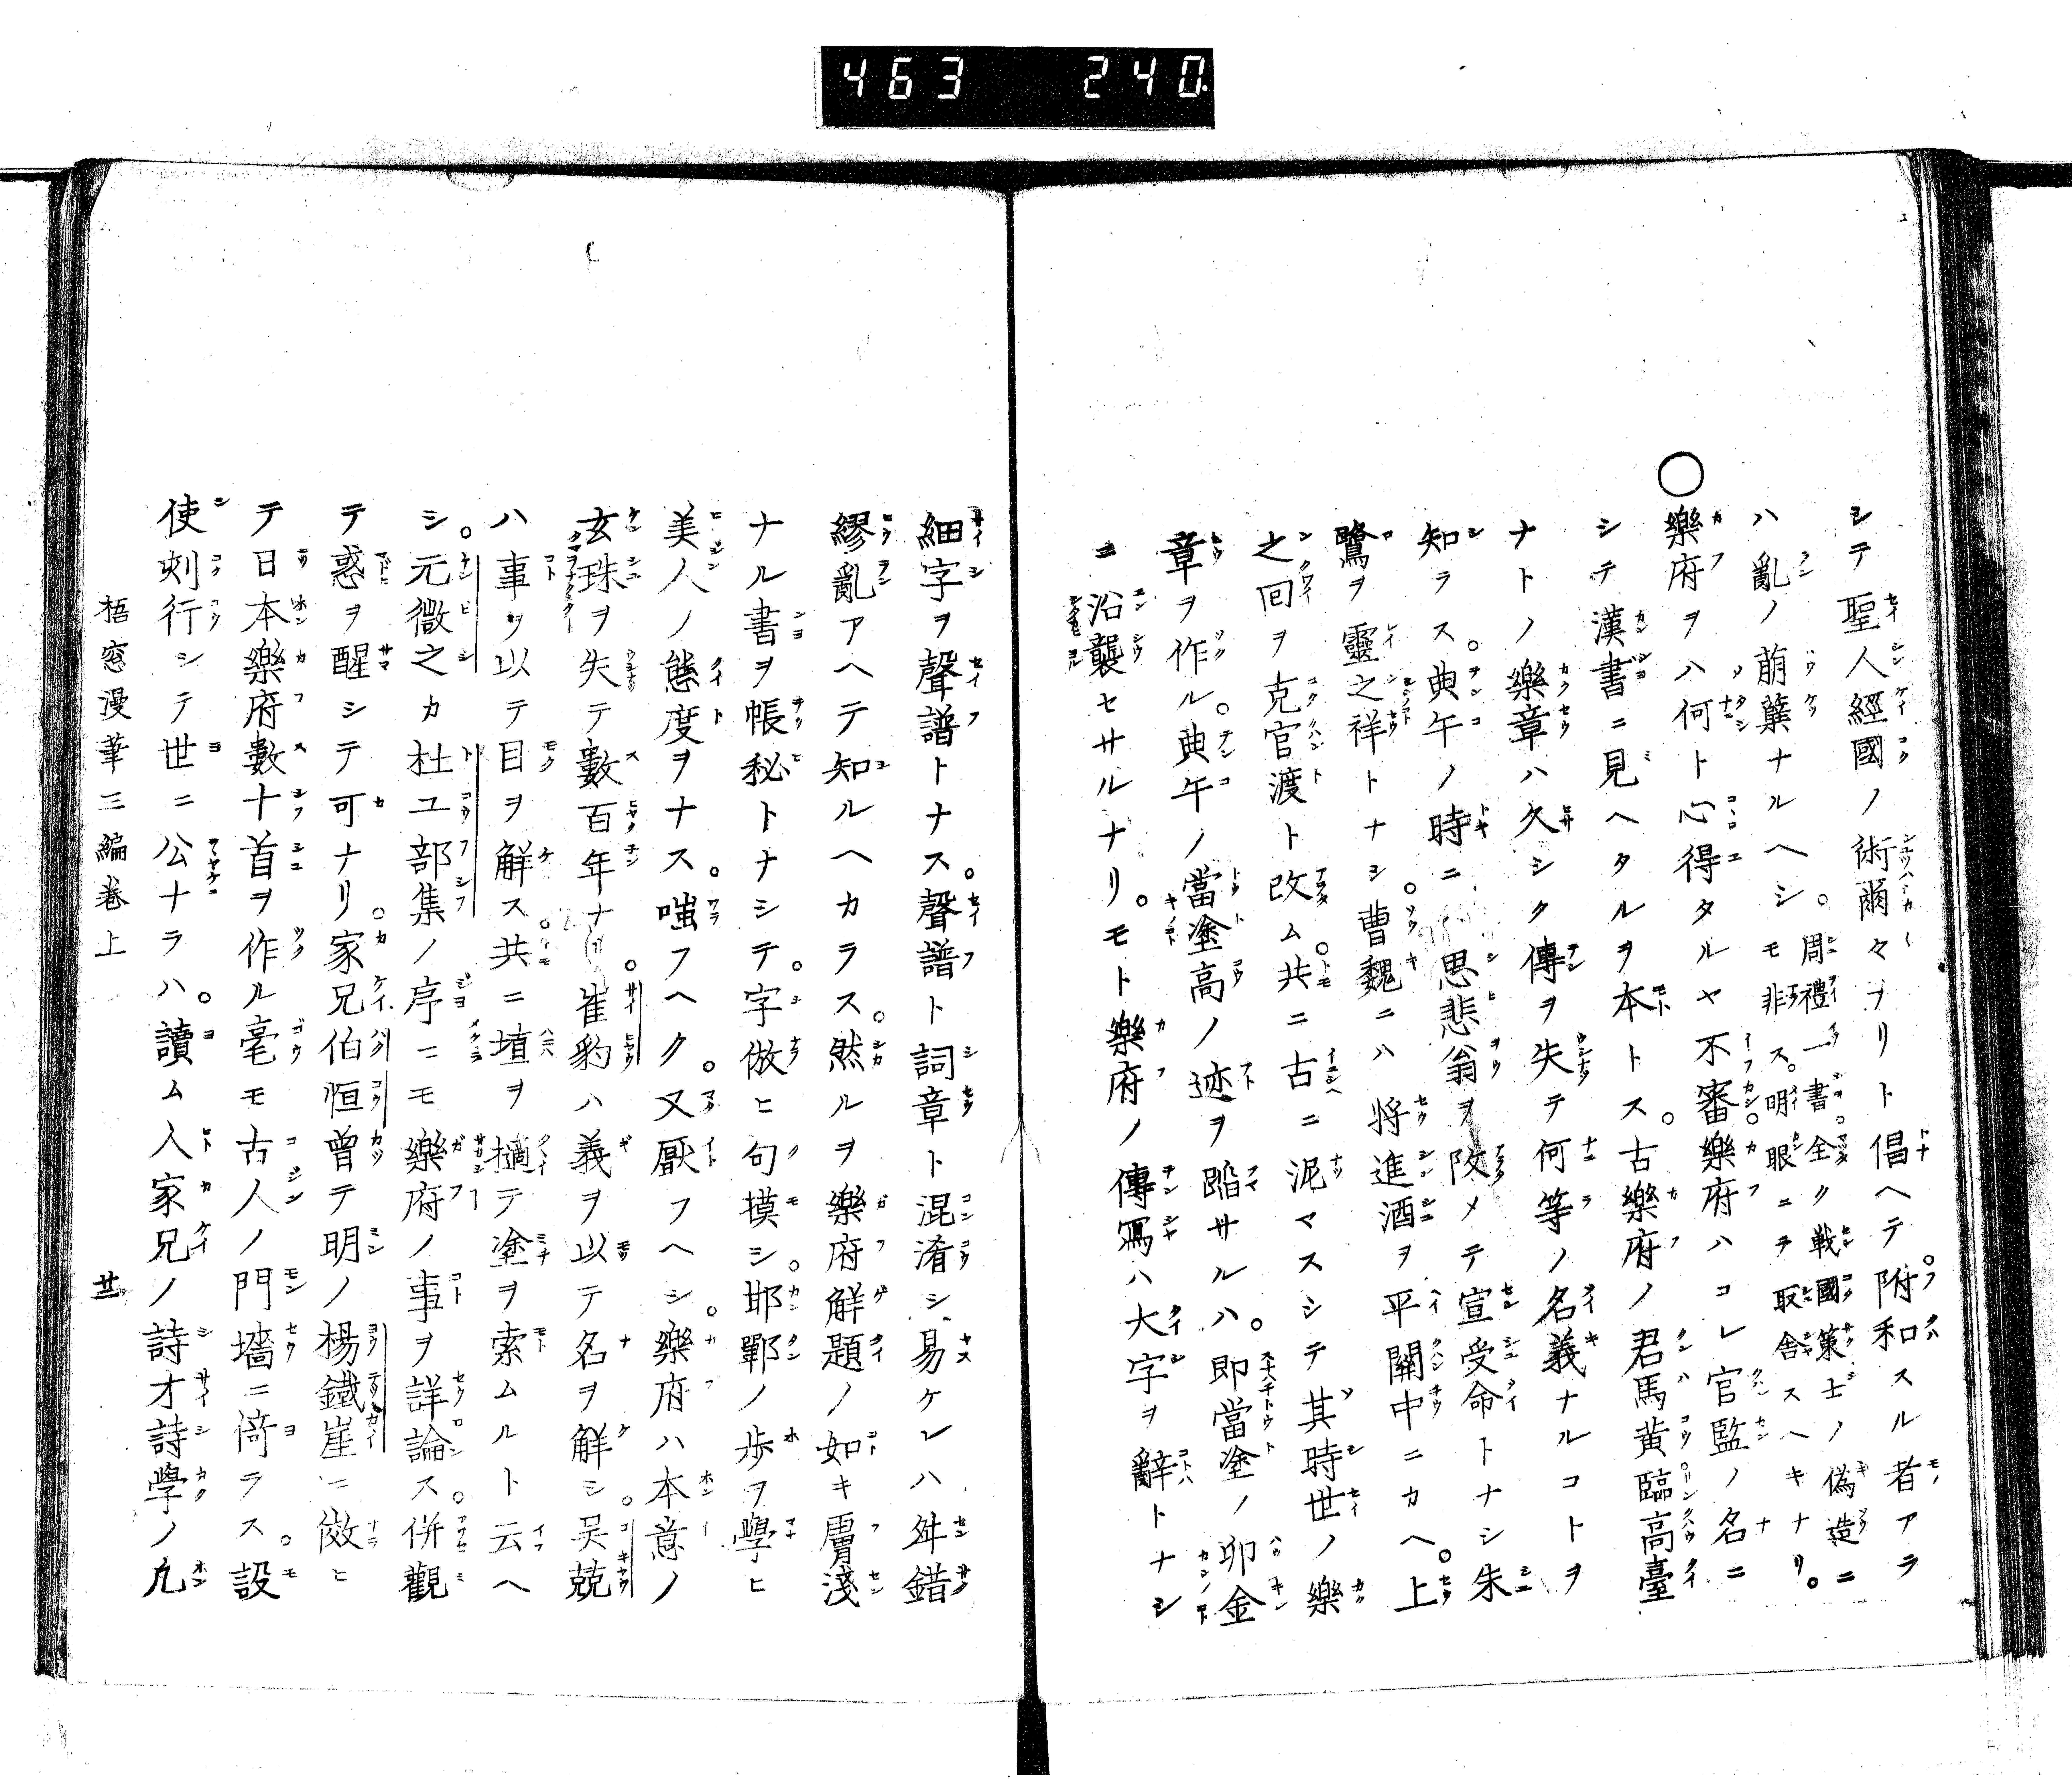 463 240
シテ聖人經國ノ術爾々ナリト倡ヘテ附和スル者アラ
ハ亂ノ萠蘖ナルヘシ。周禮ノ一書。全ク戰國策士ノ偽造ニ
モ非ス。明眼ニテ取舎スヘキナリ。
○樂府ヲハ何ト心得タルヤ不審。樂府ハコレ官監ノ名ニ
シテ漢書ニ見ヘタルヲ本トス。古樂府ノ君馬黄臨高臺
ナトノ樂章ハ久シク傳ヲ失テ何等ノ名義ナルコトヲ
知ラス。典午ノ時ニ思悲翁ヲ改メテ宣受命トナシ朱
鷺ヲ靈之祥トナシ。曹魏ニハ将進酒ヲ平關中ニカヘ。上
之回ヲ克官渡ト改ム。共ニ古ニ泥マスシテ其時世ノ樂
章ヲ作ル。典午ノ當塗高ノ迹ヲ蹈サルハ。即當塗ノ卯金
ニ沿襲セサルナリ。モト樂府ノ傳寫ハ大字ヲ辭トナシ
細字ヲ聲譜トナス。聲譜ト詞章ト混淆シ易ケレハ舛錯
繆亂アヘテ知ルヘカラス。然ルヲ樂府解題ノ如キ膚淺
ナル書ヲ帳秘トナシテ。字倣ヒ句摸シ。邯鄲ノ歩ヲ學ヒ
美人ノ態度ヲナス。嗤フヘク。又厭フヘシ。樂府ハ本意ノ
玄珠ヲ失テ數百年ナ。崔豹ハ義ヲ以テ名ヲ解シ。吴兢
ハ事ヲ以テ目ヲ解ス。共ニ埴ヲ擿テ塗ヲ索ムルト云ヘ
シ。元微之カ杜工部集ノ序ニモ樂府ノ事ヲ詳論ス。併觀
テ惑ヲ醒シテ可ナリ。家兄伯恒曾テ明ノ楊鐵崖ニ傚ヒ
テ日本樂府數十首ヲ作ル毫モ古人ノ門墻ニ倚ラス。設
使刻行シテ世ニ公ナラハ。讀ム人家兄ノ詩才詩學ノ凡
梧窓漫筆三編巻上 廿一